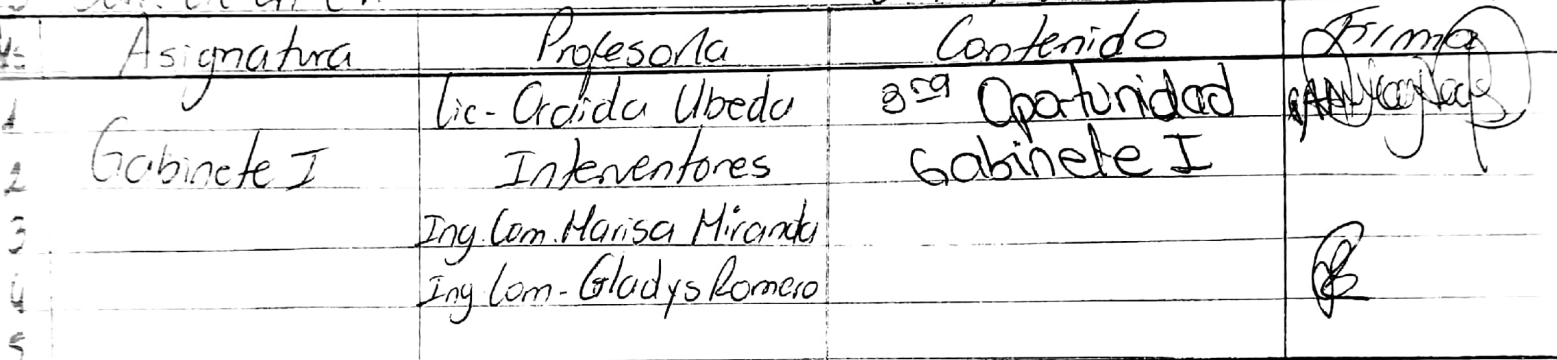 Asignatura Profesor/a Contenido Firma
1 Lic- Ubeda 3ra Oportunidad
2 Gabinete I Interventores Gabinete I
3 Ing. Com. Marisa Miranda
4 Ing Com- Gladys Romero
5